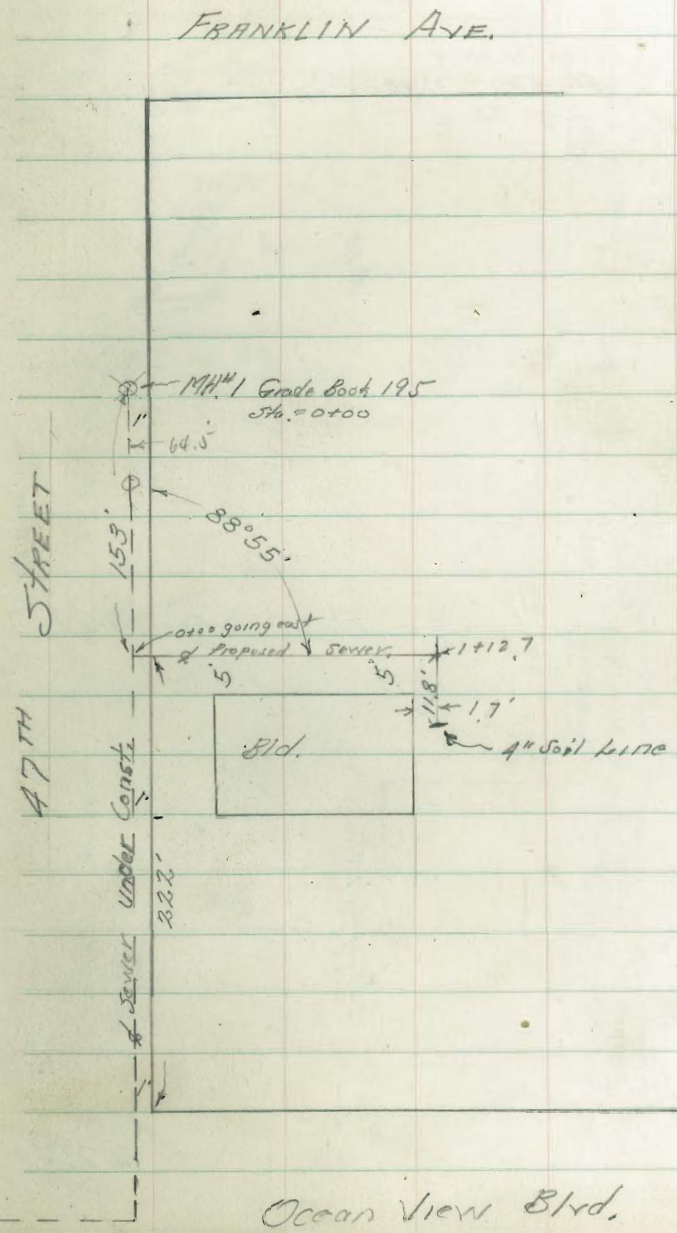 FRANKLIN AVE.
MH#1 Grade Book 195
Sta. = 0+00
64.5'
153'
88°55'
47TH STREET
0+00 going east
℄ Proposed Sewer.
1+12.7
5'
5'
11.8'
1.7'
Bld.
4" Soil Line
℄ Sewer Under Const.
222'
Ocean View Blvd.